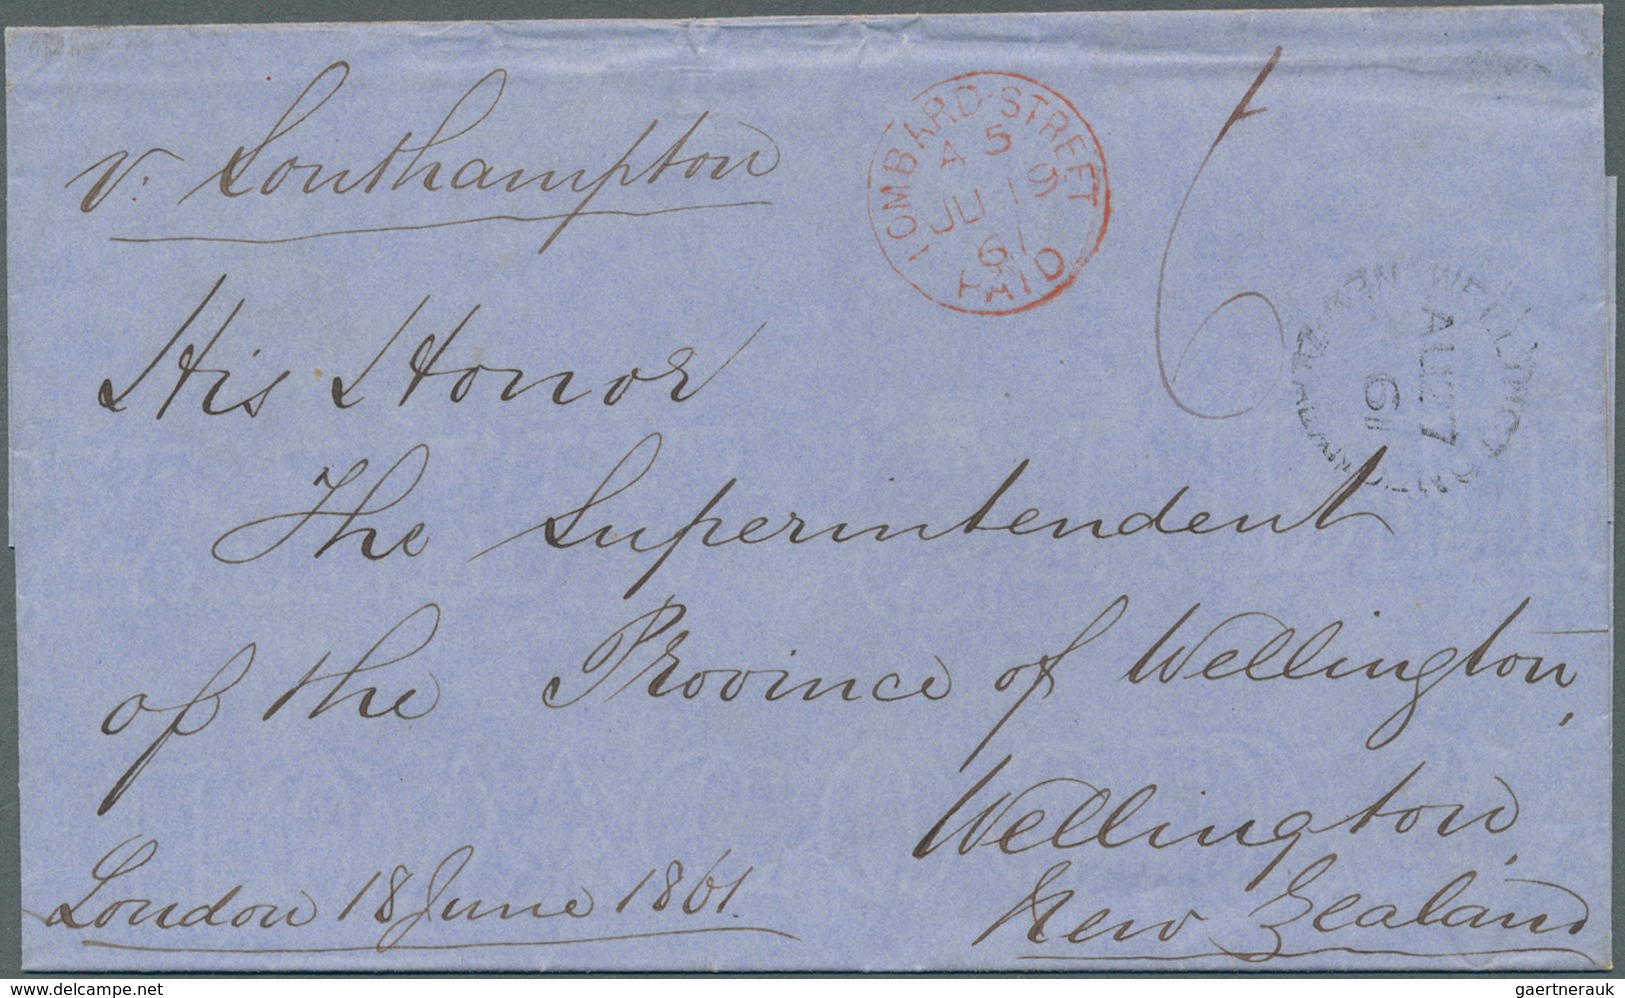 v. Southampton
LOMBARD·STREET
A 5
JU 19
61
PAID
6
WELLINGTON
AU 27
61
NEW ZEALAND
His Honor
The Superintendent
of the Province of Wellington,
Wellington,
New Zealand
London 18 June 1861.
www.delcampe.net
gaertnerauk